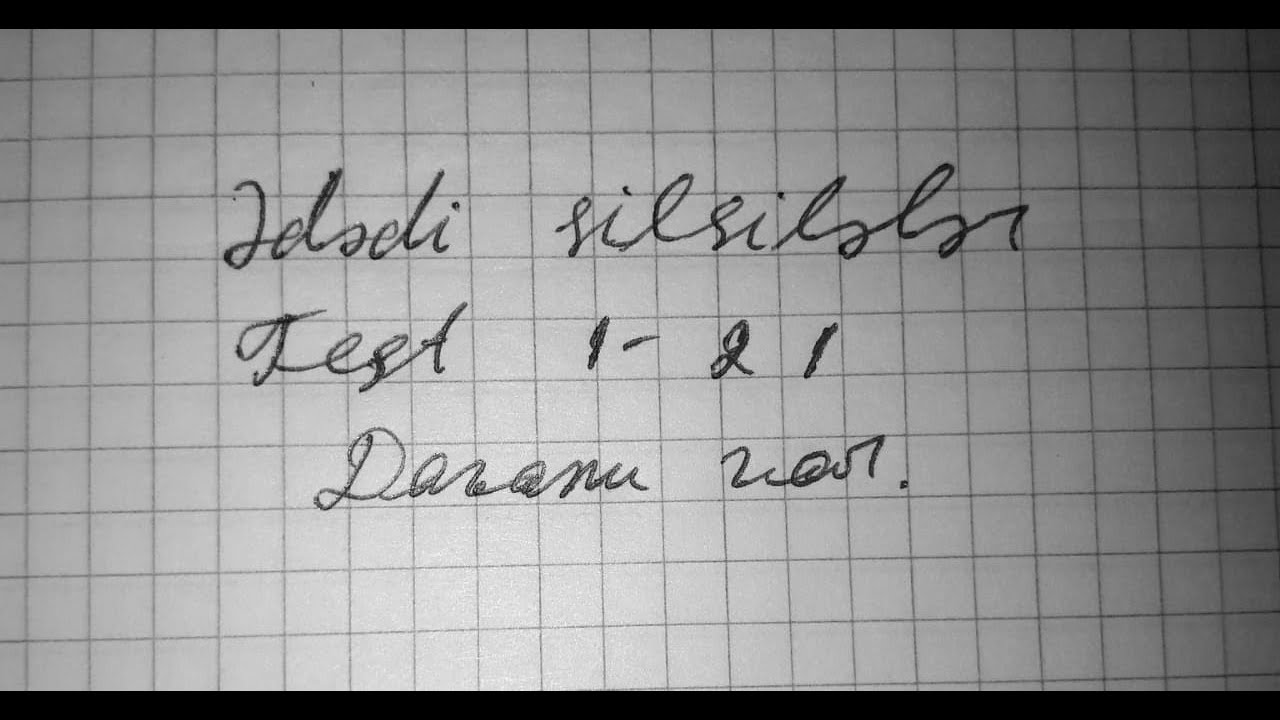 Ədədi silsilələr
Test 1-21
Davamı var.